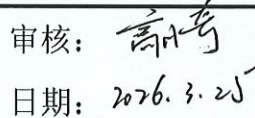 审核：
日期：2026.3.25